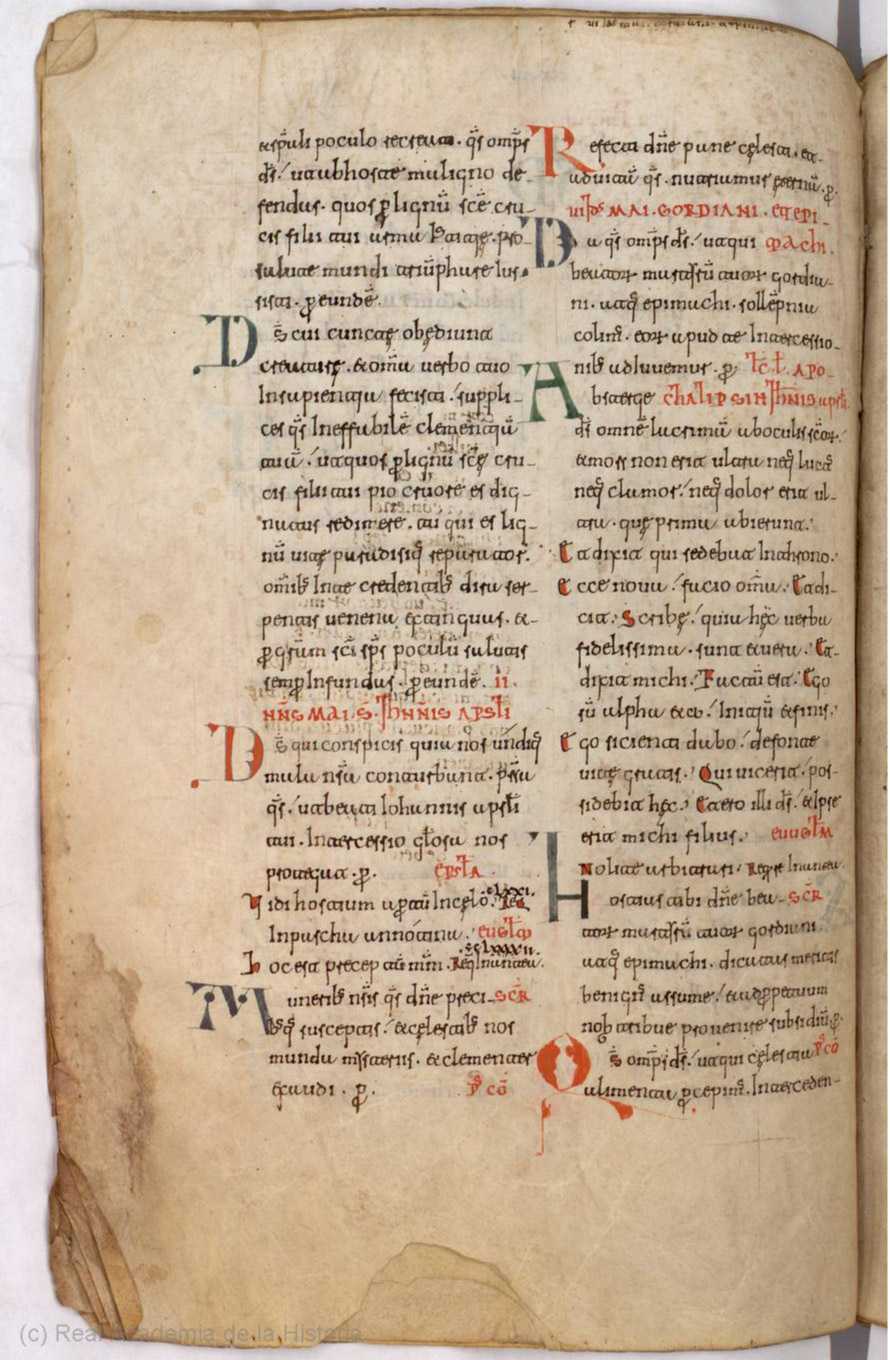 & sp̄uli poculo recreat. qs̄ omp̄s
ds̄. ut ab hoste maligno de-
fendas. quos ꝑ lignū sc̄e cru-
cis filii tui arma pro-
salute mundi triūphare ius-
sisti. ꝑ eundē.
Ds̄ cui cuncte obediunt
creature. & omīa uerbo tuo
In sapientia fecisti. suppli-
ces qs̄ Ineffabilē clementiā
tuā. ut quos ꝑ lignū sc̄e cru-
cis filii tui pio cruore es dig-
natus redimere. tu qui es lig-
nū uite paradisiq̄ reparator.
omīb; In te credentib; diri ser-
pentis uenena extinguas. &-
ꝑ gr̄am sc̄i sp̄s poculū salutis
semꝑ Infundas. ꝑ eundē. ii.
NN̄S MAI. S. IHN̄NIS APSTLI
Ds̄ qui conspicis quia nos undiq̄
mala nr̄a conturbant. pr̄sta
qs̄. ut beati Iohannis apstl̄i
tui. Intercessio gl̄osa nos
protegat. ꝑ. epstl̄a
Uidi hostium aꝑtū In celo. Req̄
In pascha annotina. euglm̄
Hoc est preceptū mm̄. Req̄ In natau.
Munerib; nr̄is qs̄ dn̄e preci- scr̄
b;q̄ susceptis. & celestib; nos
munda misteriis. & clementer
exaudi. ꝑ. p̄ cō
Refecti dn̄e pane celesti. et-
ad uitā qs̄. nutriamur eternā. ꝑ.
MAI. GORDIANI. ET EPI-
Da qs̄ omp̄s ds̄. ut qui MACHI.
beator martirū tuor gordia-
ni. atq̄ epimachi. sollēpnia
colim̄. eor apud te Intercessio-
nib; adiuuemur. ꝑ. APO-
Absterge
ds̄ omnē lacrimā ab oculis sc̄or.
& mors non erit ultra neq̄ luct̄
neq̄ clamor. neq̄ dolor erit ul-
tra. que prima abierunt.
Et dixit qui sedebat In throno.
Ecce noua facio omīa. Et di-
cit. Scribe. quia hec uerba
fidelissima sunt & uera. Et-
dixit michi. Factū est. Ego
sū alpha & ω. Initiū & finis.
Ego sicienti dabo. de fonte
uite gratis. Qui uicerit. pos-
sidebit hec. Et ero illi ds̄. & Ipse
erit michi filius. euuglm̄
Nolite arbitrari. Reqre In natau
Hostias tibi dn̄e bea- scr̄
tor martirū tuor gordiani.
atq̄ epimachi. dicatas meritis
benign̄ assume. & ad ꝑpetuum
nob; tribue prouenire subsidiū. ꝑ.
Qs̄ omp̄s ds̄. ut qui celestia p̄ cō
alimenta ꝑcepim̄. Interceden-